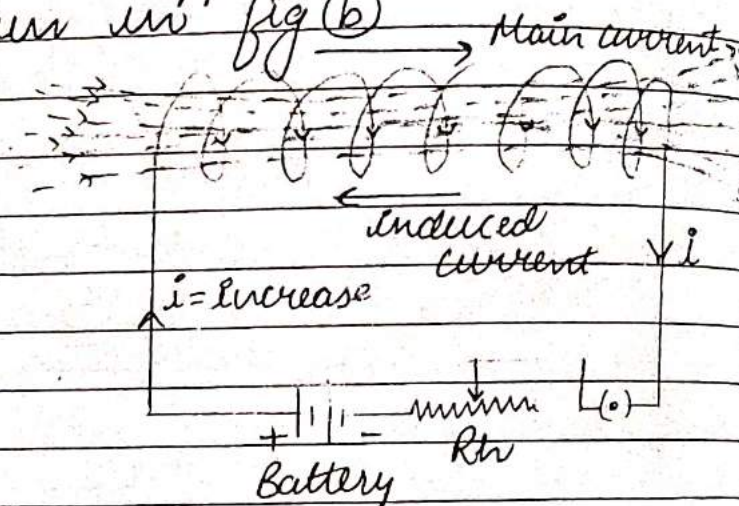 in fig (b)
Main current
induced
current
i
i = increase
+ -
Rh
Battery